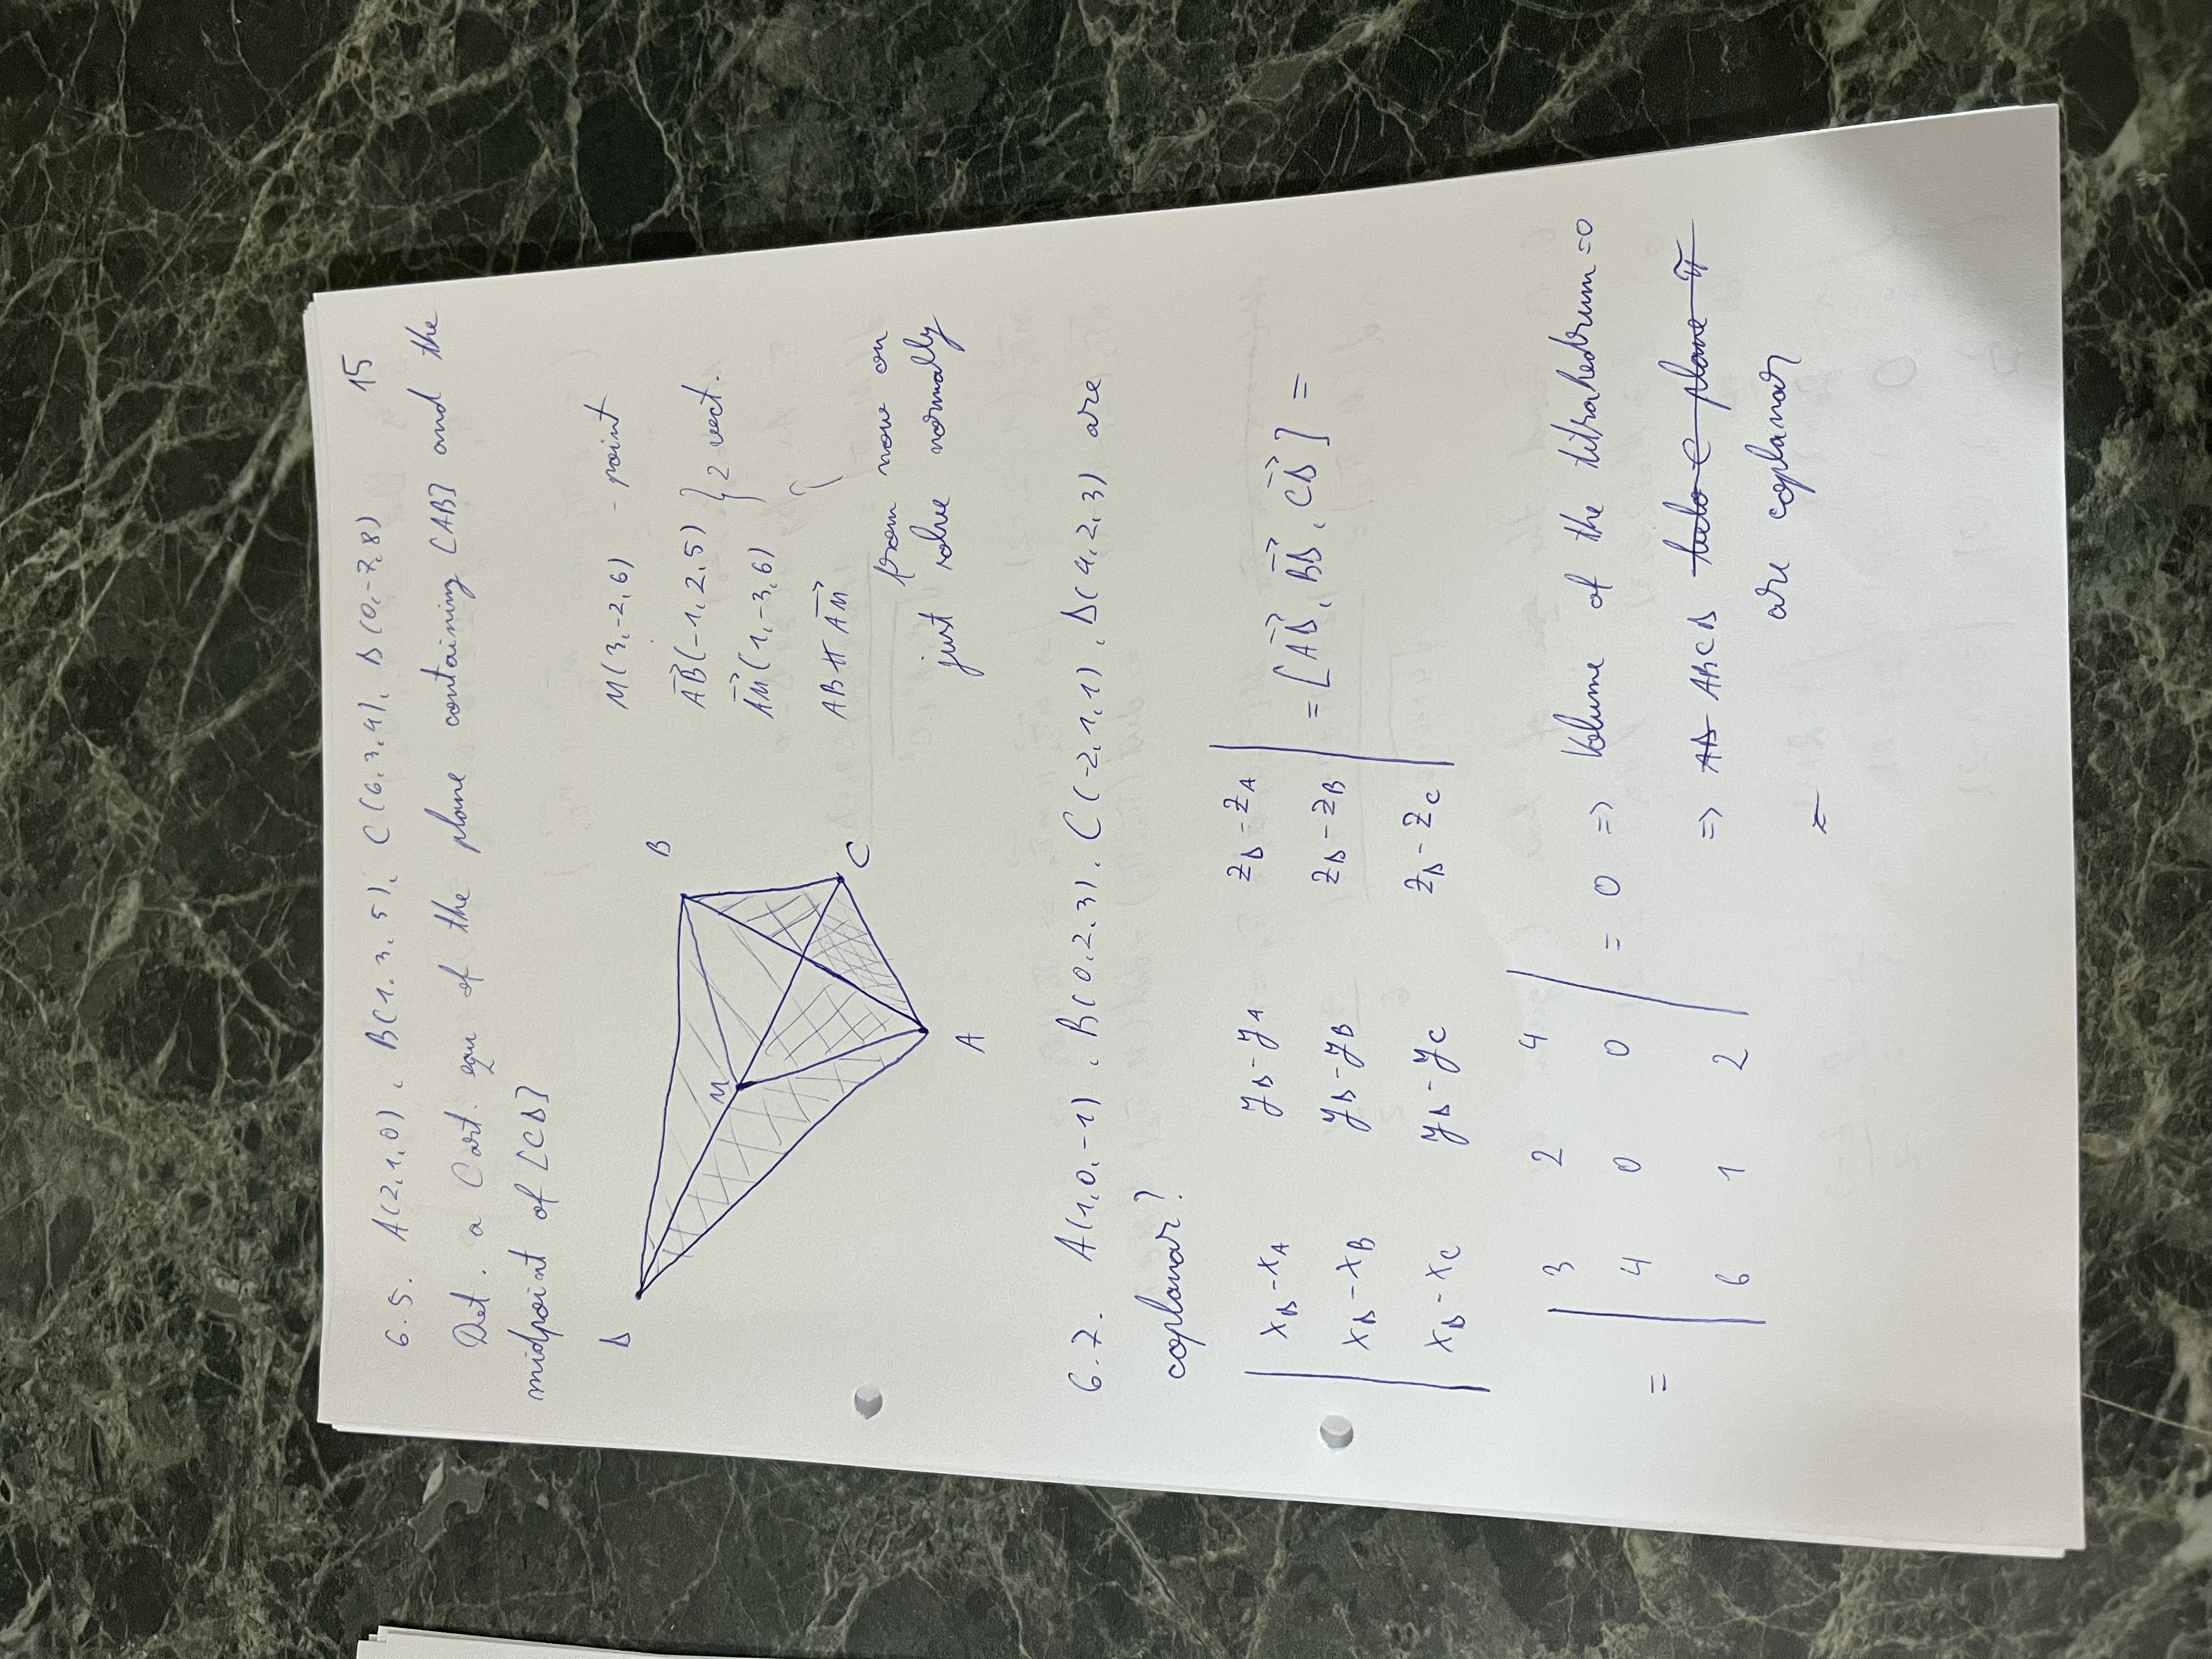 15
6.5. A(2,1,0), B(1,3,5), C(6,3,4), D(0,-7,8)
Det. a Cart. equ of the plane containing [AB] and the
midpoint of [CD]
D
B
M
C
A
M(3,-2,6) - point
AB→(-1,2,5) } 2 vect.
AM→(1,-3,6)
AB ∦ AM→
from now on
just solve normally
6.7. A(1,0,-1), B(0,2,3), C(-2,1,1), D(4,2,3) are
coplanar?
| x_D - x_A   y_D - y_A   z_D - z_A |
| x_D - x_B   y_D - y_B   z_D - z_B | = [AD→, BD→, CD→] =
| x_D - x_C   y_D - y_C   z_D - z_C |
| 3 2 4 |
= | 4 0 0 | = 0 => Volume of the titrahedrum = 0
| 6 1 2 |
=> AD ABCD plane π
are coplanar